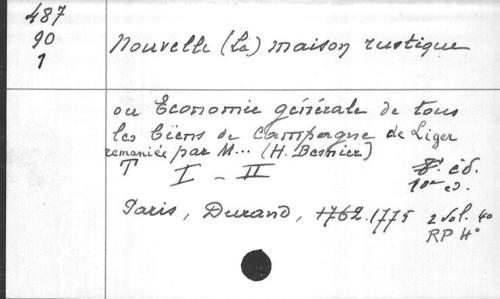 487
90
1
Nouvelle (La) maison rustique
ou Economie générale de tous
les biens de campagne de Liger
remaniée par M... (H. Besnier)
T I - II
8e. éd.
10e éd.
Paris, Durand, 1762. 1775 2 vol. 4o
RP 4°